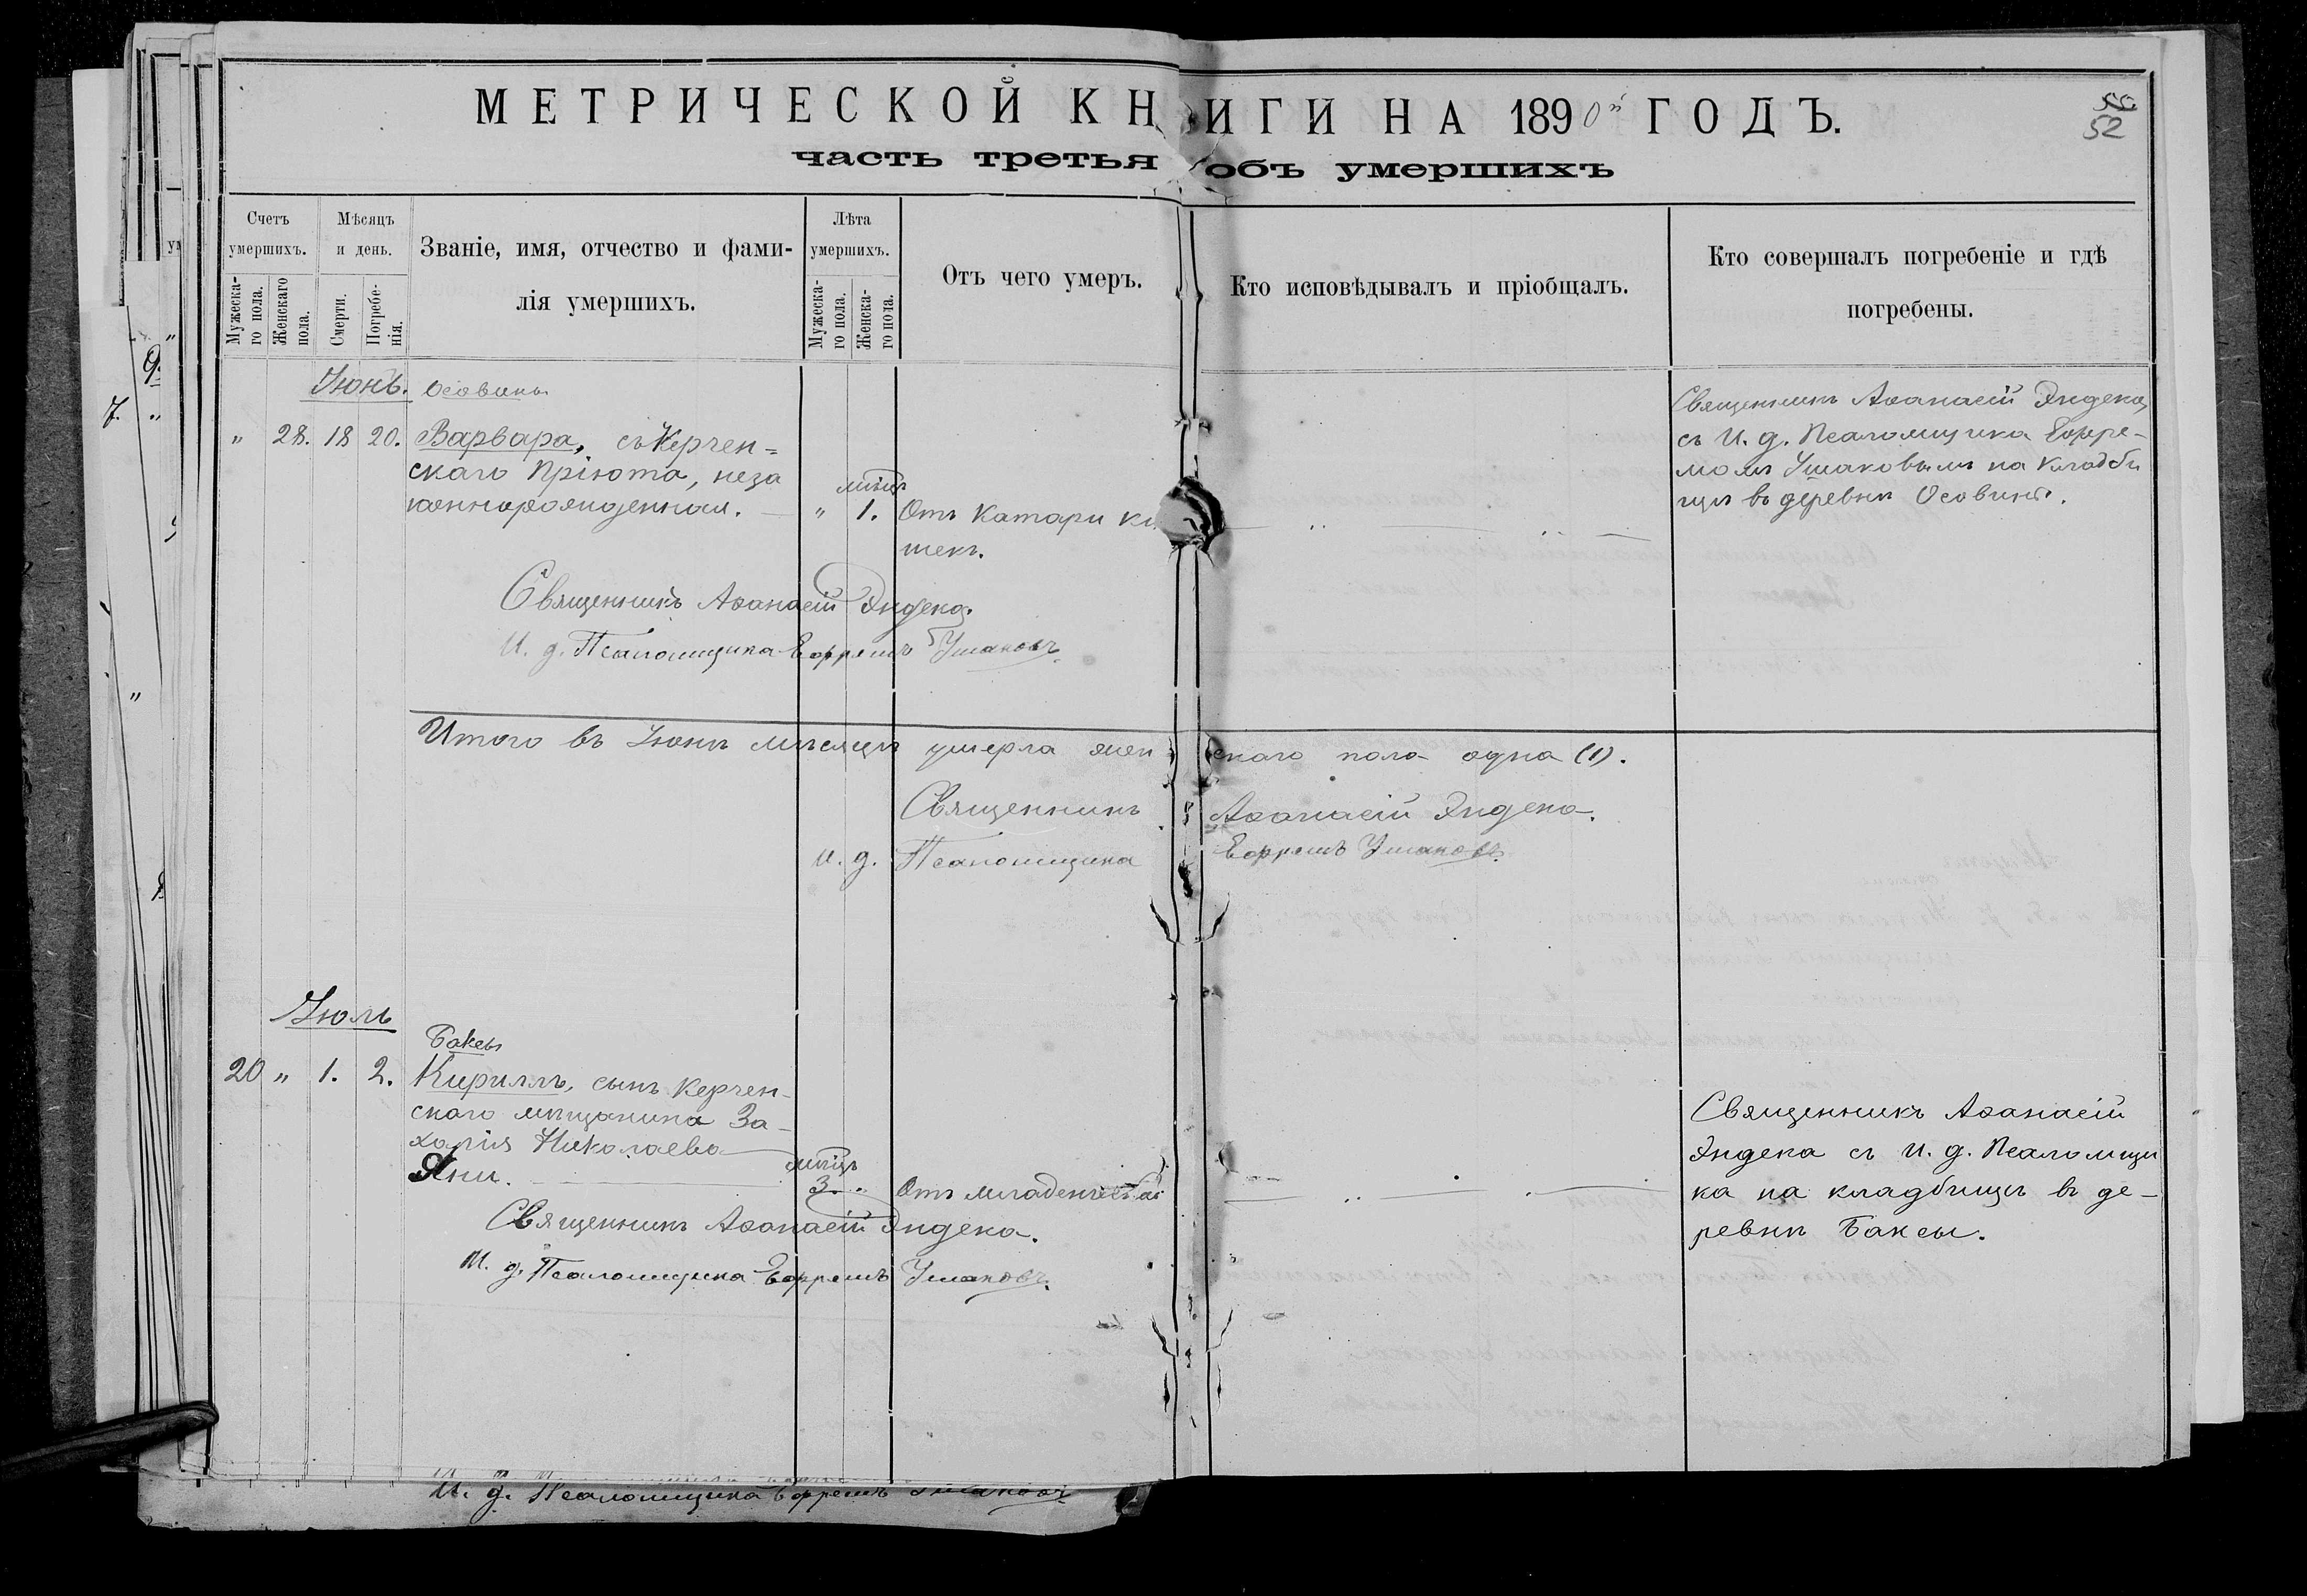 МЕТРИЧЕСКОЙ КНИГИ НА 1890й ГОДЪ.
52
часть третья объ умершихъ
Счетъ умершихъ.
Мужеска-го пола.
Женскаго пола.
Мѣсяцъ и день.
Смерти.
Погребе-нія.
Званіе, имя, отчество и фами-
лія умершихъ.
Лѣта умершихъ.
Мужеска-го пола.
Женска-го пола.
Отъ чего умеръ.
Кто исповѣдывалъ и пріобщалъ.
Кто совершалъ погребеніе и гдѣ
погребены.
Іюнь. Осовины
" 28. 18 20. Варвара, съ Керчен=
скаго Пріюта, неза
коннорожденная. " 1. Отъ Катара
шекъ.
Священникъ Аѳанасій Эндека
съ И. д. Псаломщика Ефре-
момъ Ушаковымъ на Кладби
щѣ въ деревнѣ Осовинѣ.
Священникъ Аѳанасій Эндека.
И. д. Псаломщика Ефремъ Ушаковъ.
Итого въ Іюнѣ мѣсяцѣ умерла женскаго пола одна (1).
Священникъ Аѳанасій Эндека.
И. д. Псаломщика Ефремъ Ушаковъ.
Іюль
Баксы
20 " 1. 2. Кириллъ, сынъ Керчен-
скаго мѣщанина За-
харія Николаева
Яни. мѣсяц 3. " Отъ младенческ
Священникъ Аѳанасій
Эндека съ И. д. Псаломщи
ка на кладбищѣ въ де-
ревнѣ Баксы.
Священникъ Аѳанасій Эндека.
И. д. Псаломщика Ефремъ Ушаковъ.
И. д. Псаломщика Ефремъ Ушаковъ